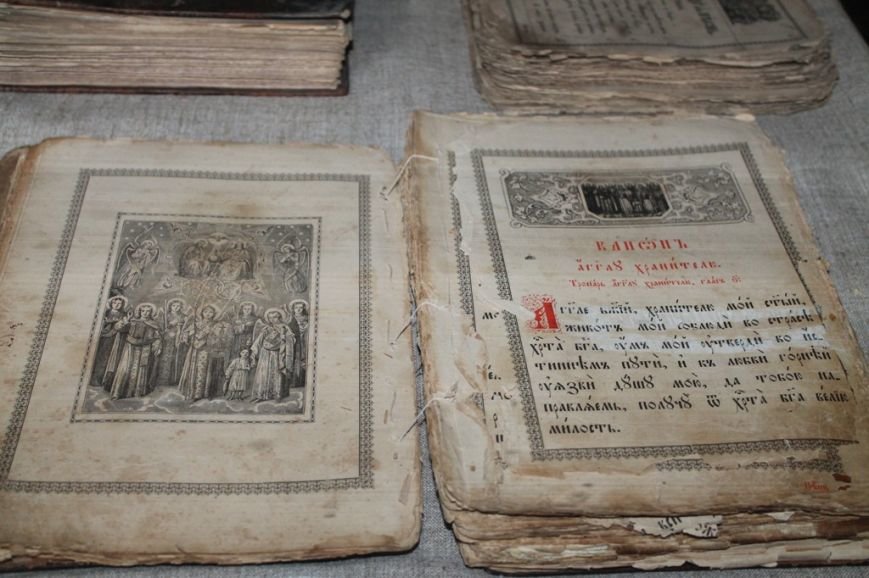 КАНѠ́НЪ
А҆́гг҃лꙋ храни́телю.
Тропа́рь а҆́гг҃лꙋ храни́телю, гла́съ ѕ҃:
А҆́гг҃ле бж҃їй, храни́телю мо́й ст҃ы́й,
живо́тъ мо́й соблюдѝ во стра́сѣ
хрⷭ҇та̀ бг҃а, ᲂу҆́мъ мо́й ᲂу҆твердѝ во и҆́-
стиннѣмъ пꙋтѝ, и҆ къ любвѝ го́рнѣй
ᲂу҆ѧзвѝ дꙋ́шꙋ мою̀, да тобо́ю на-
правлѧ́емь, полꙋчꙋ̀ ѿ хрⷭ҇та̀ бг҃а ве́лїю
ми́лость.